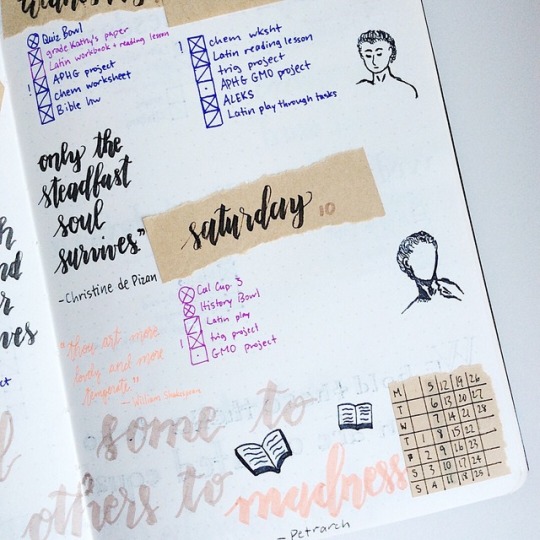 Wednesday
Quiz Bowl
grade Kathy's paper
Latin workbook + reading lesson
! APHG project
chem worksheet
Bible hw
! chem wksht
Latin reading lesson
trig project
APHG GMO project
ALEKS
Latin play through tasks
only the
steadfast
soul
survives"
-Christine de Pizan
saturday 10
Cal Cup 3
History Bowl
Latin play
! trig project
GMO project
"thou art more
lovely and more
temperate"
- William Shakespeare
some to
others to madness
- Petrarch
M 5 12 19 26
T 6 13 20 27
W 7 14 21 28
T 1 8 15 22
F 2 9 16 23
S 3 10 17 24
S 4 11 18 25